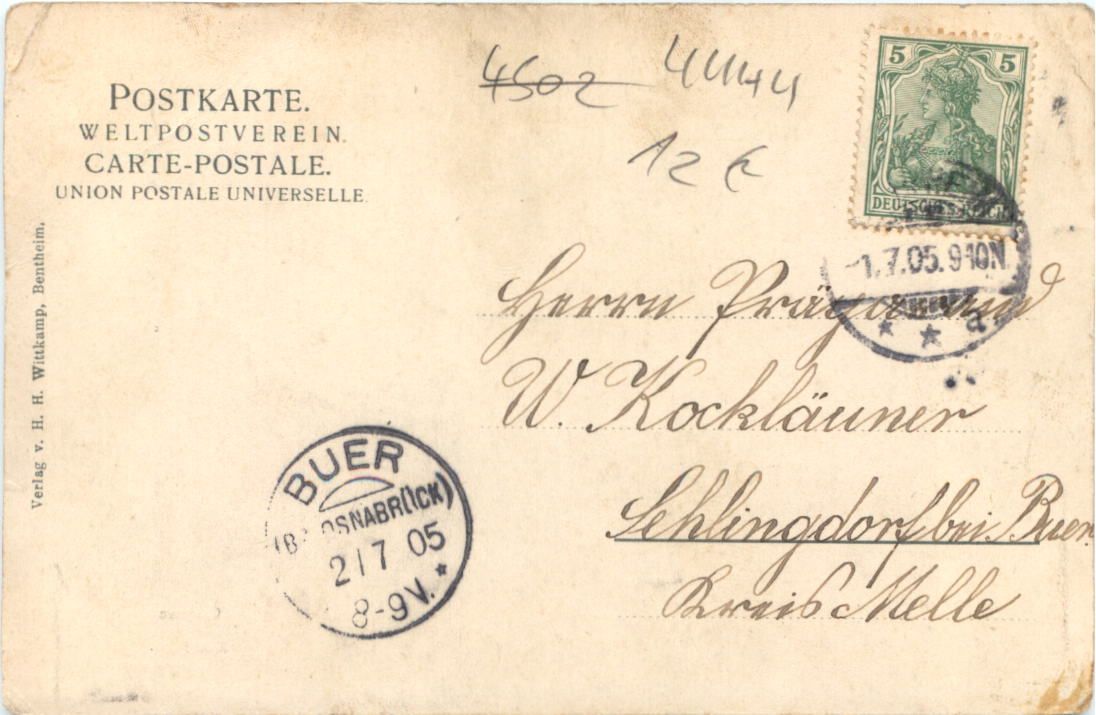 POSTKARTE.
WELTPOSTVEREIN.
CARTE-POSTALE.
UNION POSTALE UNIVERSELLE.
Verlag v. H. H. Wittkamp, Bentheim.
4502
44144
12 €
5 5
DEUTSCHES REICH
1.7.05.9-10N.
* * a
Herrn
W. Kockläuner
Sehlingdorf bei Buer
Kreis Melle
BUER
(BZ. OSNABRÜCK)
2/7 05
8-9V. *